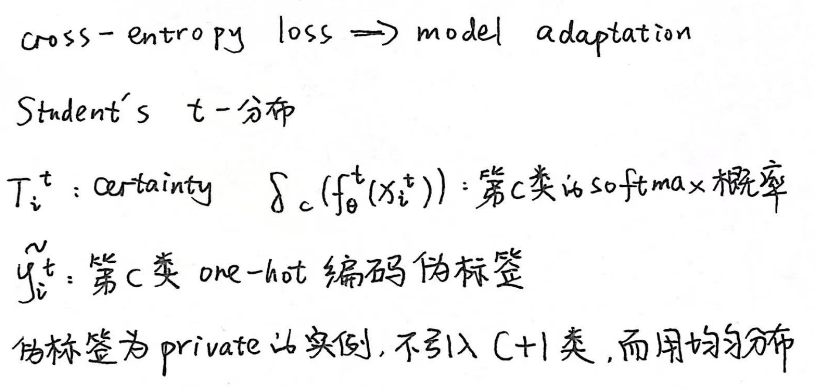 cross-entropy loss → model adaptation
Student's t-分布
T_i^t : certainty δ_c(f_θ^t(x_i^t)) : 第C类的softmax概率
ỹ_i^t : 第C类 one-hot 编码伪标签
伪标签为private的实例，不引入 C+1类，而用均匀分布